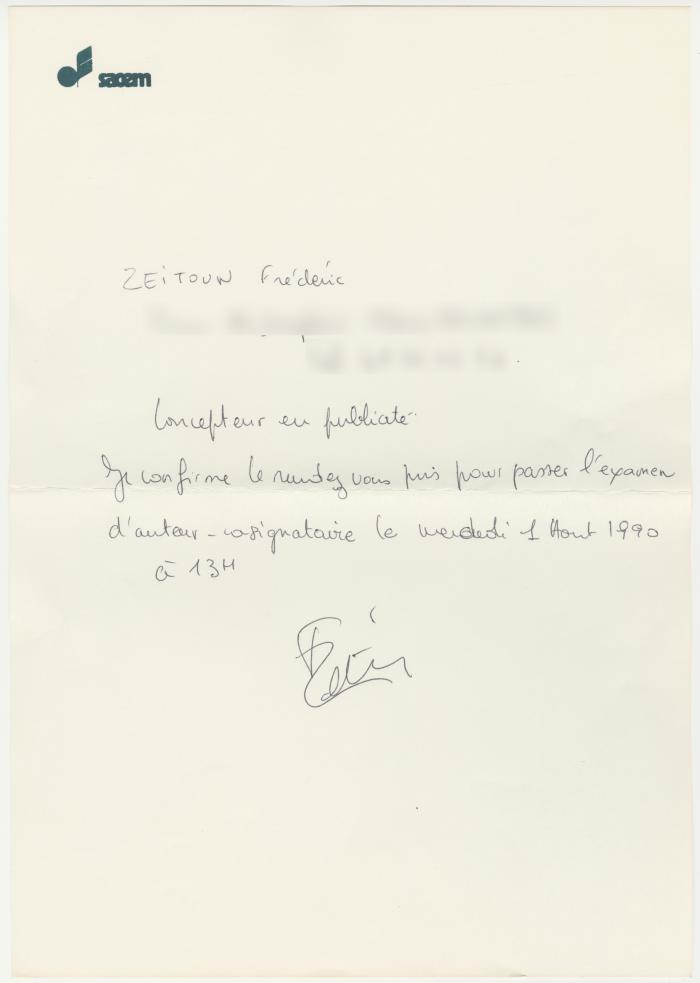 sacem
ZEITOUN Frédéric
Concepteur en publicité
Je confirme le rendez vous pris pour passer l'examen
d'auteur-cosignataire le mercredi 1 Aout 1990
à 13H